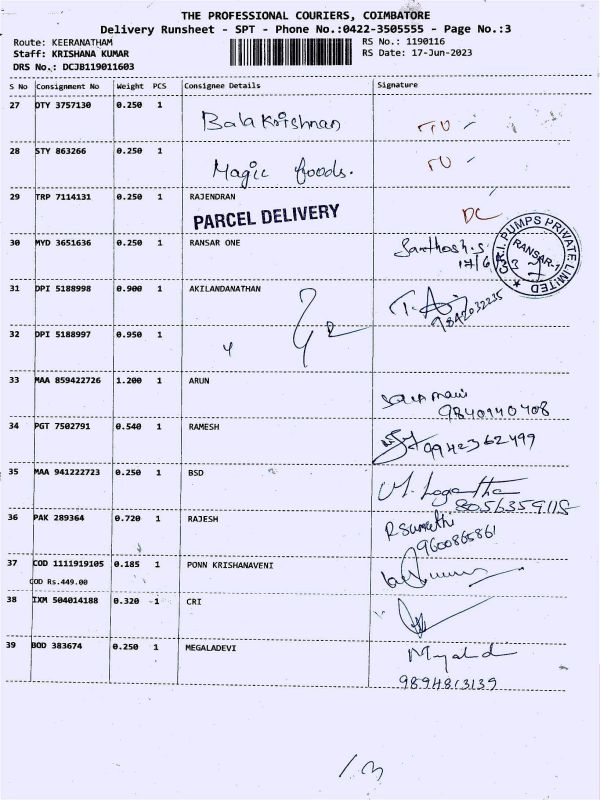 THE PROFESSIONAL COURIERS, COIMBATORE
Delivery Runsheet - SPT - Phone No.:0422-3505555 - Page No.:3
Route: KEERANATHAM RS No.: 1190116
Staff: KRISHANA KUMAR RS Date: 17-Jun-2023
DRS No.: DCJB119011603
S No Consignment No Weight PCS Consignee Details Signature
27 DTY 3757130 0.250 1 Balakrishnan
28 STY 863266 0.250 1 Magic foods.
29 TRP 7114131 0.250 1 RAJENDRAN
PARCEL DELIVERY DC
30 MYD 3651636 0.250 1 RANSAR ONE Santhosh.s
17/6
C.R.I. PUMPS PRIVATE LIMITED
RANSAR-1
31 DPI 5188998 0.900 1 AKILANDANATHAN
9842032235
32 DPI 5188997 0.950 1
33 MAA 859422726 1.200 1 ARUN
9840940408
34 PGT 7502791 0.540 1 RAMESH 9942362499
35 MAA 941222723 0.250 1 BSD
8056359118
36 PAK 289364 0.720 1 RAJESH R Sumathi
9600865861
37 COD 1111919105 0.185 1 PONN KRISHANAVENI
COD Rs.449.00
38 IXM 504014188 0.320 1 CRI
39 BOD 383674 0.250 1 MEGALADEVI
9894813139